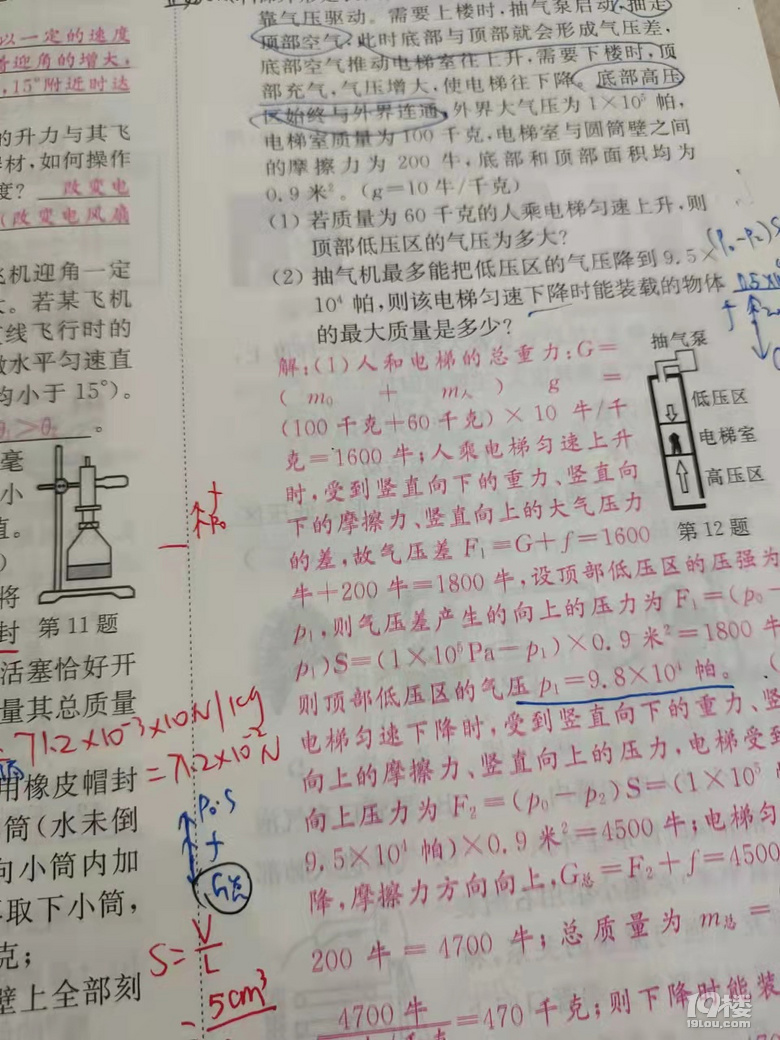 以一定的速度
着迎角的增大,
,15°附近时达
的升力与其飞
器材,如何操作
度? 改变电
(改变电风扇
飞机迎角一定
大。若某飞机
直线飞行时的
做水平匀速直
均小于15°)。
毫
小
值。
)
将
封 第11题
活塞恰好开
量其总质量
=71.2×10⁻³×10N/kg
=7.2×10⁻²N
用橡皮帽封
筒(水未倒
向小筒内加
取下小筒,
克;
壁上全部刻
P₀·S
f
G总
S=V/L
5cm³
f
P₀
靠气压驱动。需要上楼时,抽气泵启动,抽走
顶部空气,此时底部与顶部就会形成气压差,
底部空气推动电梯室往上升,需要下楼时,顶
部充气,气压增大,使电梯往下降。底部高压
区始终与外界连通,外界大气压为1×10⁵帕,
电梯室质量为100千克,电梯室与圆筒壁之间
的摩擦力为200牛,底部和顶部面积均为
0.9米²。(g=10牛/千克)
(1) 若质量为60千克的人乘电梯匀速上升,则
顶部低压区的气压为多大?
(2) 抽气机最多能把低压区的气压降到9.5×
10⁴帕,则该电梯匀速下降时能装载的物体
的最大质量是多少?
(P₀-P₂)S
解:(1)人和电梯的总重力:G=
(m₀+m人)g=
(100千克+60千克)×10牛/千
克=1600牛;人乘电梯匀速上升
时,受到竖直向下的重力、竖直向
下的摩擦力、竖直向上的大气压力
的差,故气压差F₁=G+f=1600
牛+200牛=1800牛,设顶部低压区的压强为
p₁,则气压差产生的向上的压力为F₁=(p₀-
p₁)S=(1×10⁵Pa-p₁)×0.9米²=1800牛
则顶部低压区的气压p₁=9.8×10⁴帕。(
电梯匀速下降时,受到竖直向下的重力、竖
向上的摩擦力、竖直向上的压力,电梯受到
向上压力为F₂=(p₀-p₂)S=(1×10⁵帕
9.5×10⁴帕)×0.9米²=4500牛;电梯匀
降,摩擦力方向向上,G总=F₂+f=4500
200牛=4700牛;总质量为m总=
4700牛
=470千克;则下降时能装
抽气泵
低压区
电梯室
高压区
第12题
19楼
19lou.com